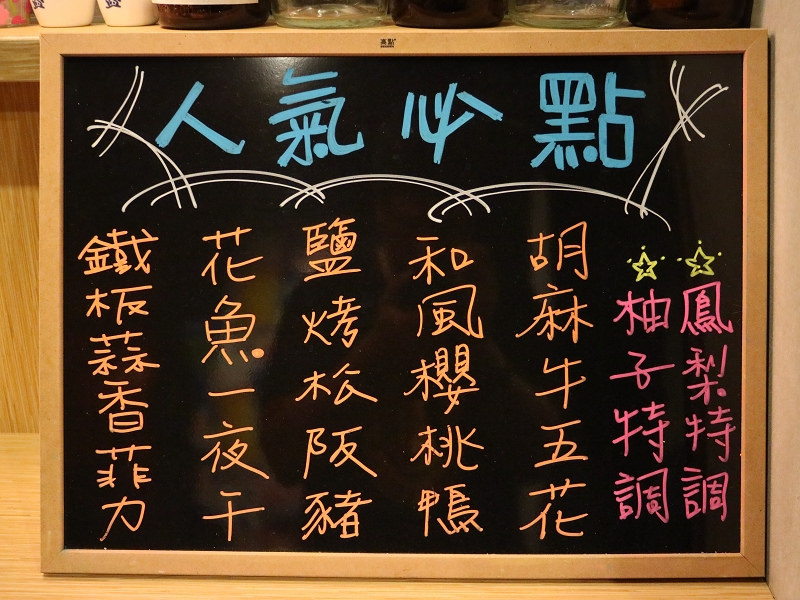 人氣必點
鳳梨特調
柚子特調
胡麻牛五花
和風櫻桃鴨
鹽烤松阪豬
花魚一夜干
鐵板蒜香菲力